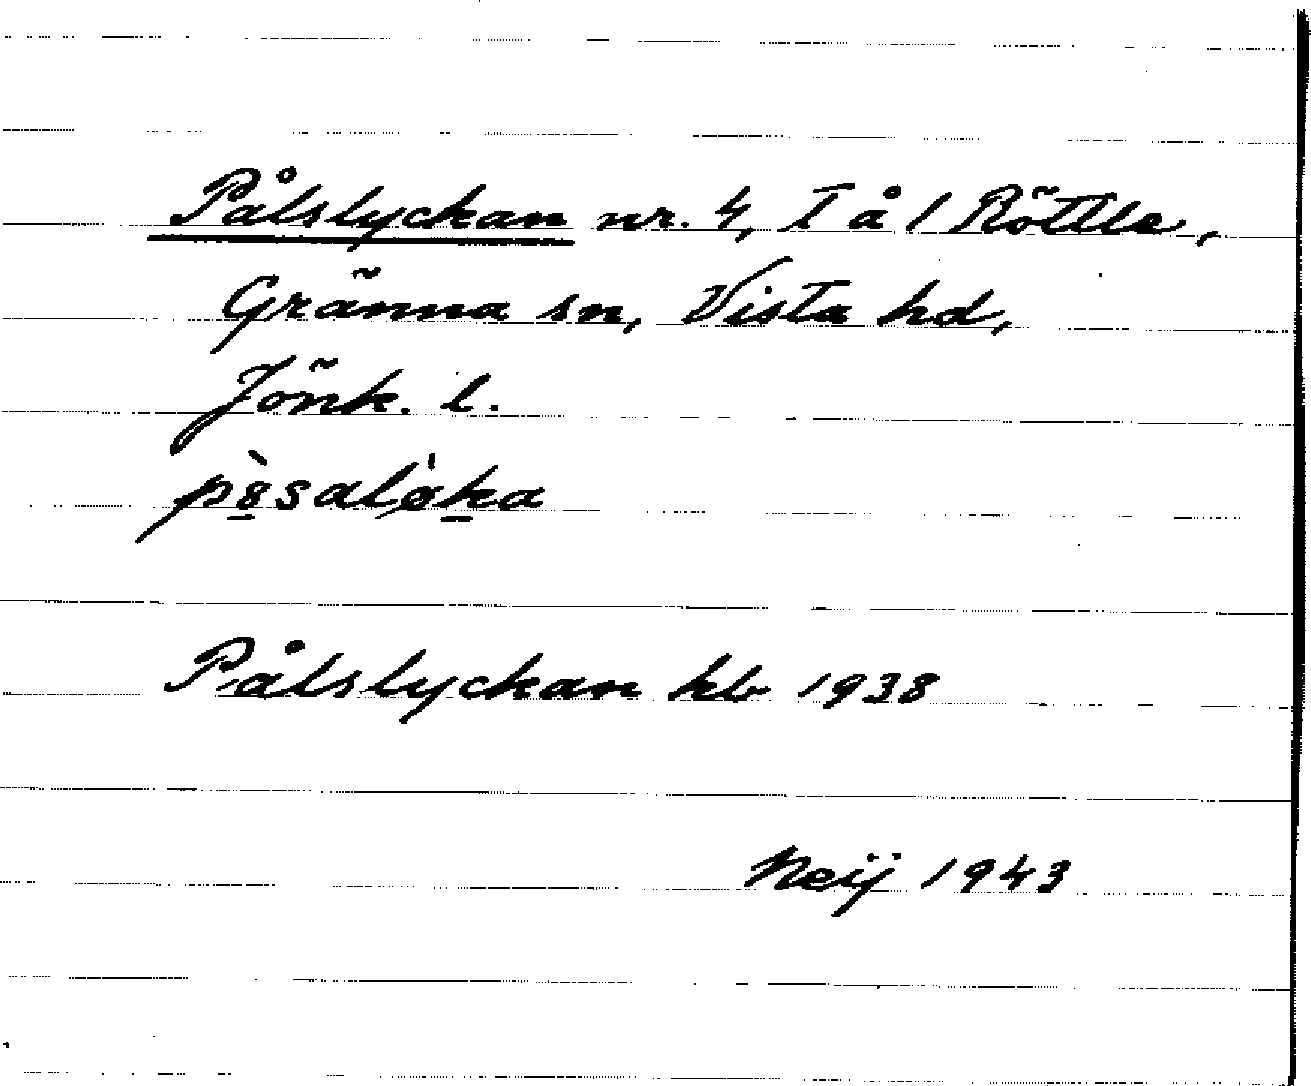 Pålslyckan nr. 4, T å 1 Röttle,
Gränna sn, Vista hd,
Jönk. l.
Pålslyckan kb 1938
Neij 1943